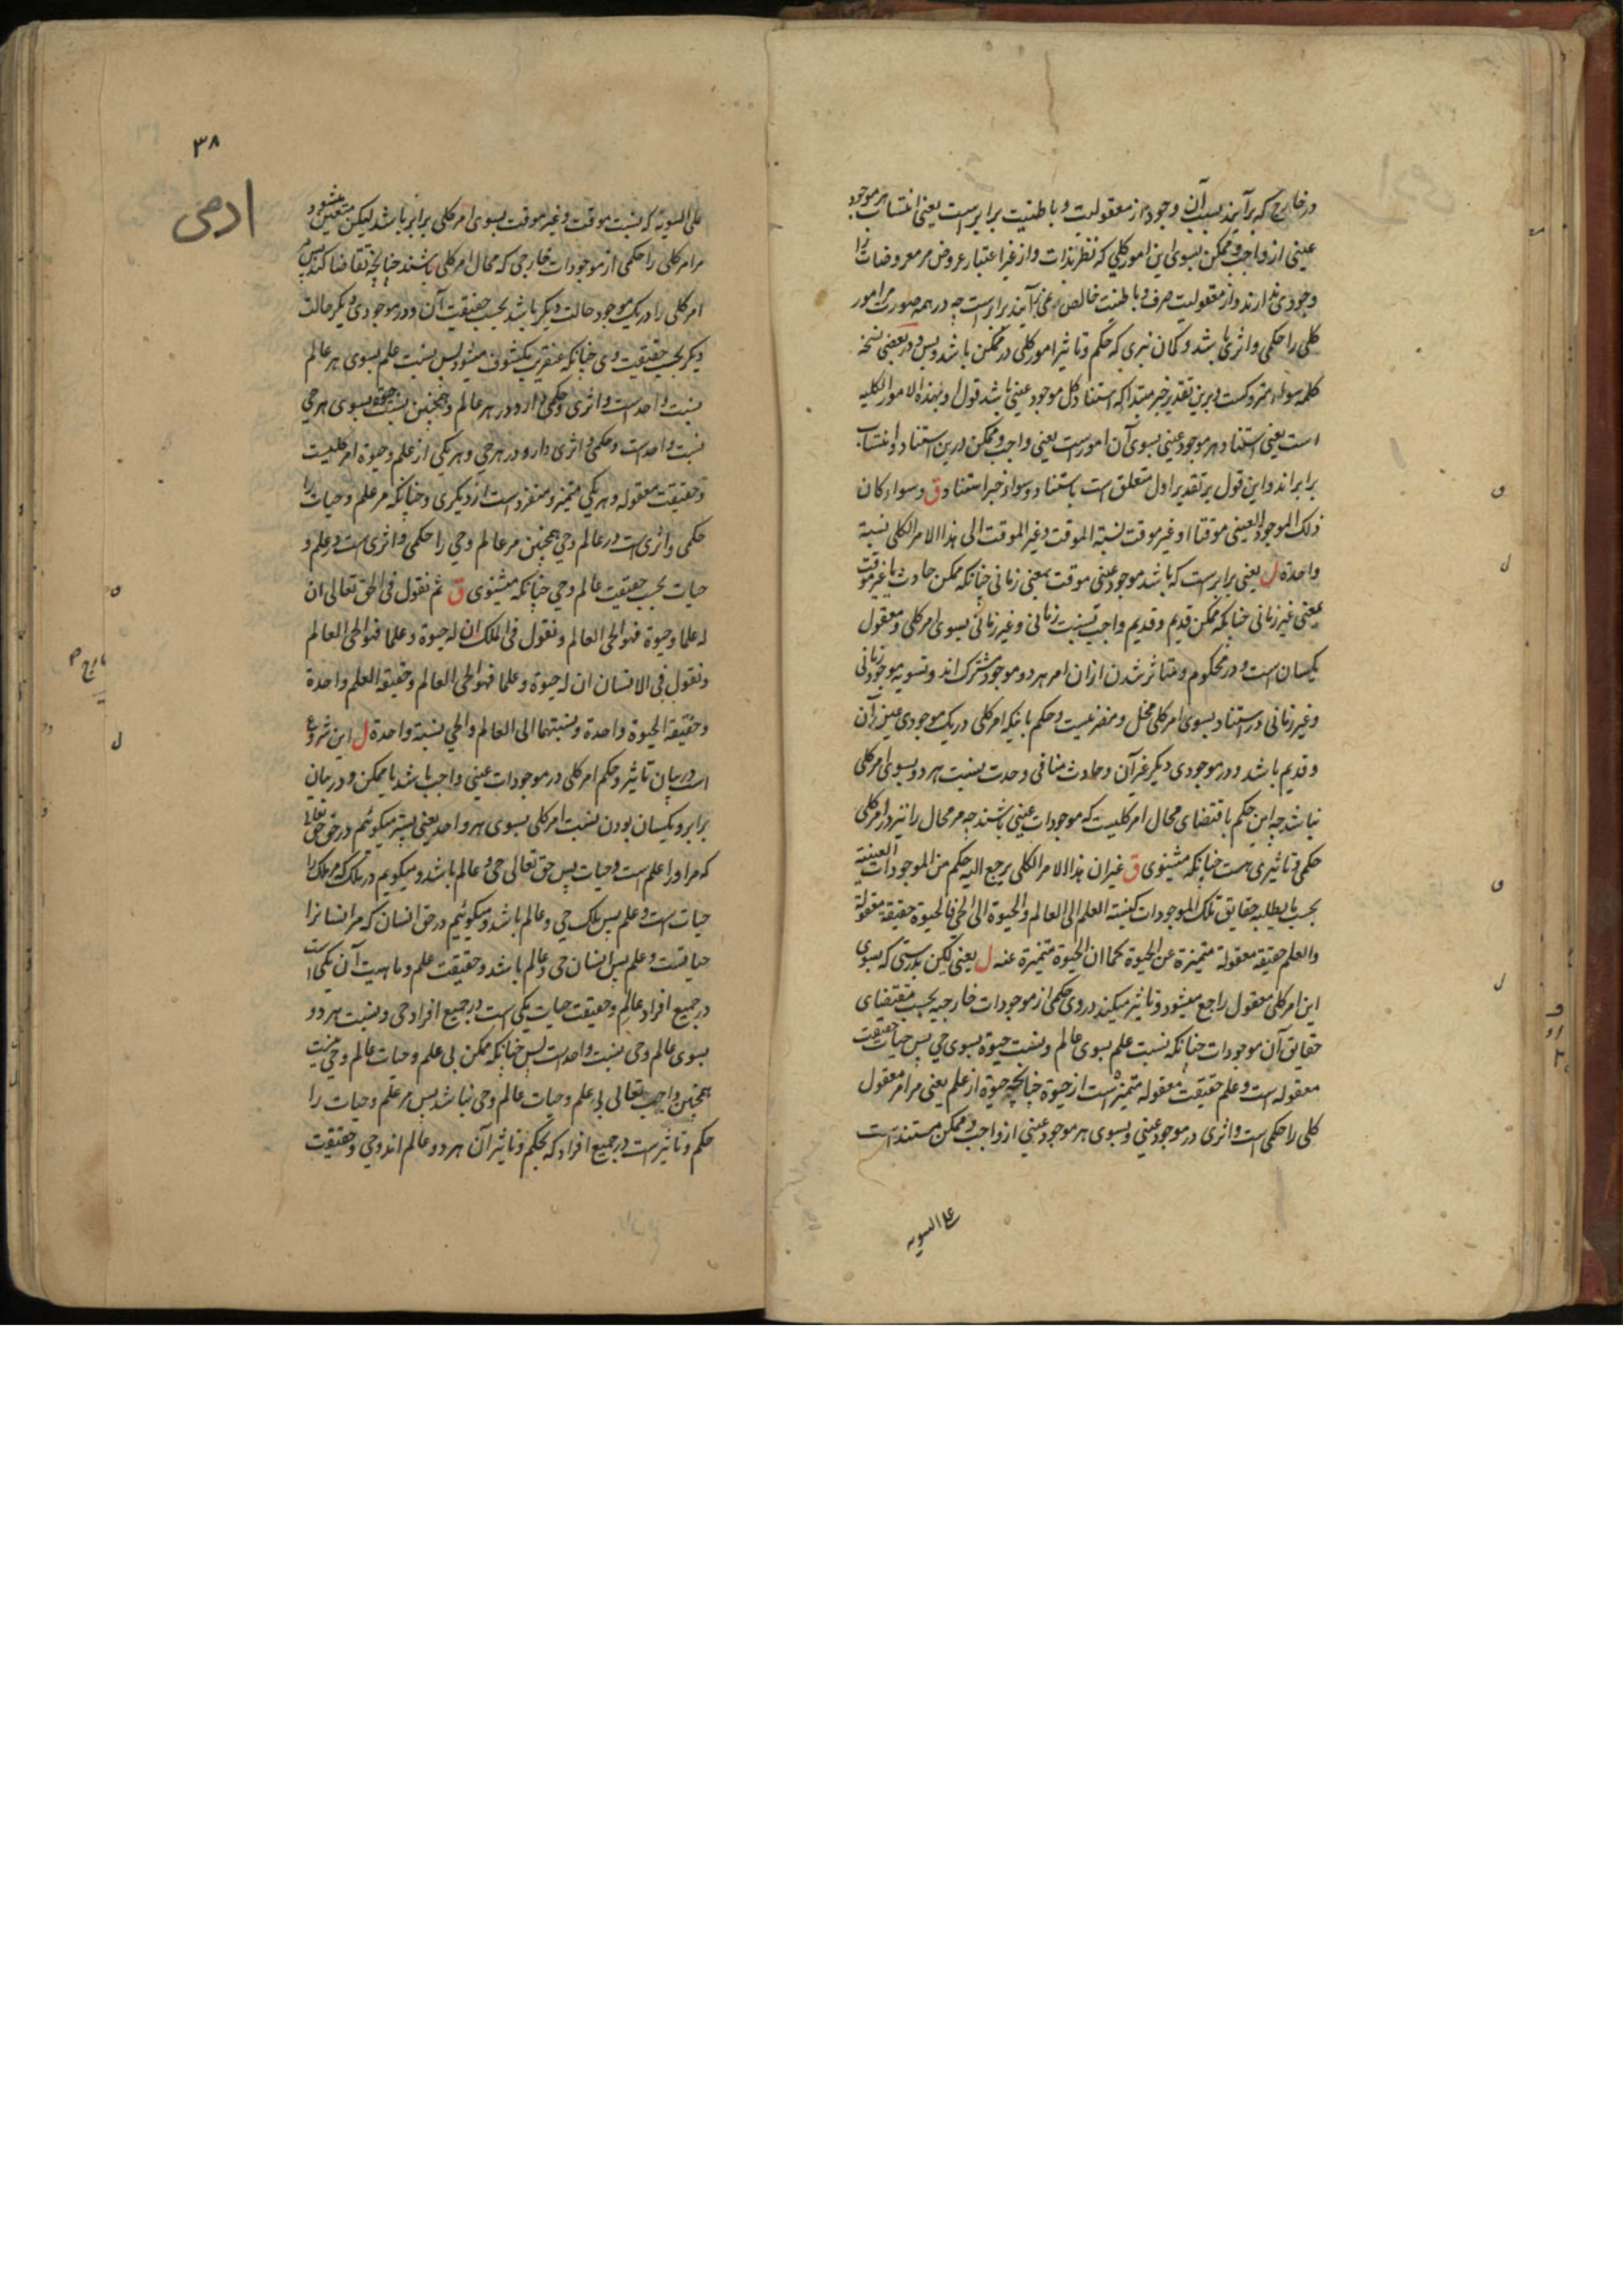 در خارج که برآیند بسبب آن وجود از معقولیت و باطنیت برابرست یعنی انتساب هر موجود
عینی از واجب و ممکن بسوی این امور کلی که نظر بذات و از غیر اعتبار عروض مر معروضات را
وجودی ندارند و از معقولیت صرف و باطنیت خالص نمی برآیند برابرست چه در همه صورت مر امور
کلی را حکمی و اثری باشد و گمان نبری که حکم و تاثیر امور کلی در ممکن باشد و بس و در بعضی نسخه
کلمه سواء متروکست و برین تقدیر خبر مبتدا که استناد کل موجود عینی باشد قول او بهذه الامور الکلیه
است یعنی استناد هر موجود عینی بسوی آن امورست یعنی واجب و ممکن درین استناد و انتساب
برابراند و این قول بر تقدیر اول متعلق است باستناد و سواء خبر استناد ق و سواء کان
ذلک الموجود العینی موقتا او غیر موقت نسبة الموقت و غیر الموقت الی هذا الامر الکلی نسبة
واحدة ل یعنی برابرست که باشد موجود عینی موقت بمعنی زمانی چنانکه ممکن حادث یا غیر موقت
بمعنی غیر زمانی چنانکه ممکن قدیم و قدیم واجب نسبت زمانی و غیر زمانی بسوی امر کلی و معقول
یکسان است و در محکوم و متاثر شدن ازان امر هر دو موجود مشترک اند و تسویه موجود زمانی
و غیر زمانی در استناد بسوی امر کلی مخل و مضر نیست و حکم بانیکه امر کلی در یک موجودی عین آن
و قدیم باشد و در موجودی دیگر غیر آن و حادث منافی وحدت نسبت هر دو بسوی امر کلی
نباشد چه این حکم باقتضای محال امر کلیست که موجودات عینی باشند چه مر محال را نیز در امر کلی
حکمی و تاثیری هست چنانکه میشنوی ق غیر ان هذا الامر الکلی یرجع الیه حکم من الموجودات العینیة
بحسب ما یطلبه حقایق تلک الموجودات کنسبة العلم الی العالم والحیوة الی الحی فالحیوة حقیقة معقولة
والعلم حقیقة معقولة متمیزة عن الحیوة کما ان الحیوة متمیزة عنه ل یعنی لکن بدرستی که بسوی
این امر کلی معقول راجع میشود و تاثیر میکند در وی حکمی از موجودات خارجیه بحسب مقتضای
حقایق آن موجودات چنانکه نسبت علم بسوی عالم و نسبت حیوة بسوی حی پس حیات حقیقت
معقوله است و علم حقیقت معقوله متمیزه است از حیوة چنانچه حیوة از علم یعنی مر امر معقول
کلی را حکمی است و اثری در موجود عینی و بسوی هر موجود عینی از واجب و ممکن مستند است
علی السویه
۳۸
ادمی
علی السویه که نسبت موقت و غیر موقت بسوی امر کلی برابر باشد لیکن متعین میشود
مر امر کلی را حکمی از موجودات خارجی که محال امر کلی باشند چنانچه تقاضا کند پس
امر کلی را در یک موجود حالت دیگر باشد بحسب حقیقت آن و در موجودی دیگر حالت
دیگر بحسب حقیقت وی چنانکه عنقریب مکشوف میشود پس نسبت علم بسوی هر عالم
نسبت واحد است و اثری و حکمی دارد در هر عالم و همچنین نسبت حیوة بسوی هر حی
نسبت واحد است و حکمی و اثری دارد در هر حی و هر یکی از علم و حیوة امر کلیست
و حقیقت معقوله و هر یکی متمیز و منفرد است از دیگری و چنانکه مر علم و حیات را
حکمی و اثری است در عالم و حی همچنین مر عالم و حی را حکمی و اثری است در علم و
حیات بحسب حقیقت عالم و حی چنانکه میشنوی ق ثم نقول فی الحق تعالی ان
له علما وحیوة فهو الحی العالم ونقول فی الملک ان له حیوة وعلما فهو الحی العالم
ونقول فی الانسان ان له حیوة وعلما فهو الحی العالم وحقیقة العلم واحدة
وحقیقة الحیوة واحدة ونسبتهما الی العالم والحی نسبة واحدة ل این شروع
است در بیان تاثیر و حکم امر کلی در موجودات عینی واجب باشد یا ممکن و در بیان
برابر و یکسان بودن نسبت امر کلی بسوی هر واحد یعنی پستر میگوئیم در حق حق تعالی
که مر او را علم است و حیات پس حق تعالی حی و عالم باشد و میگویم در ملک که مر ملک را
حیات است و علم پس ملک حی و عالم باشد و میگوئیم در حق انسان که مر انسانرا
حیاتست و علم پس انسان حی و عالم باشد و حقیقت علم و ماهیت آن یکی است
در جمیع افراد عالم و حقیقت حیات یکی است در جمیع افراد حی و نسبت هر دو
بسوی عالم و حی نسبت واحد است پس چنانکه ممکن بی علم و حیات عالم و حی نیست
همچنین واجب تعالی بی علم و حیات عالم و حی نباشد پس مر علم و حیات را
حکم و تاثیر است در جمیع افراد که بحکم و تاثیر آن هر دو عالم اند و حی و حقیقت